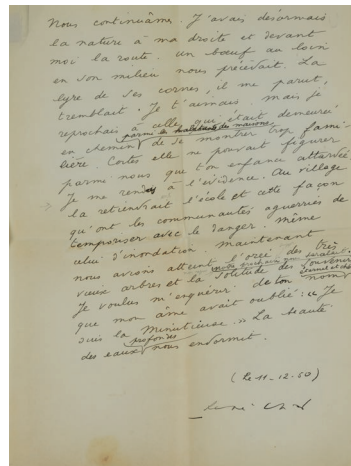 Nous continuâmes. J'avais désormais
la nature à ma droite et devant
moi la route. Un bœuf au loin
en son milieu nous précédait. La
lyre de ses cornes, il me parut,
tremblait. Je t'aimais. Mais je
reprochais à celle qui était demeurée
en chemin parmi les habitants des maisons
de se montrer trop fami-
lière. Certes elle ne pouvait figurer
parmi nous que ton enfance attardée
Je me rendis à l'évidence. Au village
la retiendrait l'école et cette façon
qu'ont les communautés aguerries de
temporiser avec le danger. Même
celui d'inondation. Maintenant
nous avions atteint l'orée des très
vieux arbres et la solitude des souvenirs
Je voulus m'enquérir de ton nom
que mon âme avait oublié : « Je
suis la Minutieuse. » La beauté
des eaux profondes nous endormit.
(Le 11-12-50)
René Char